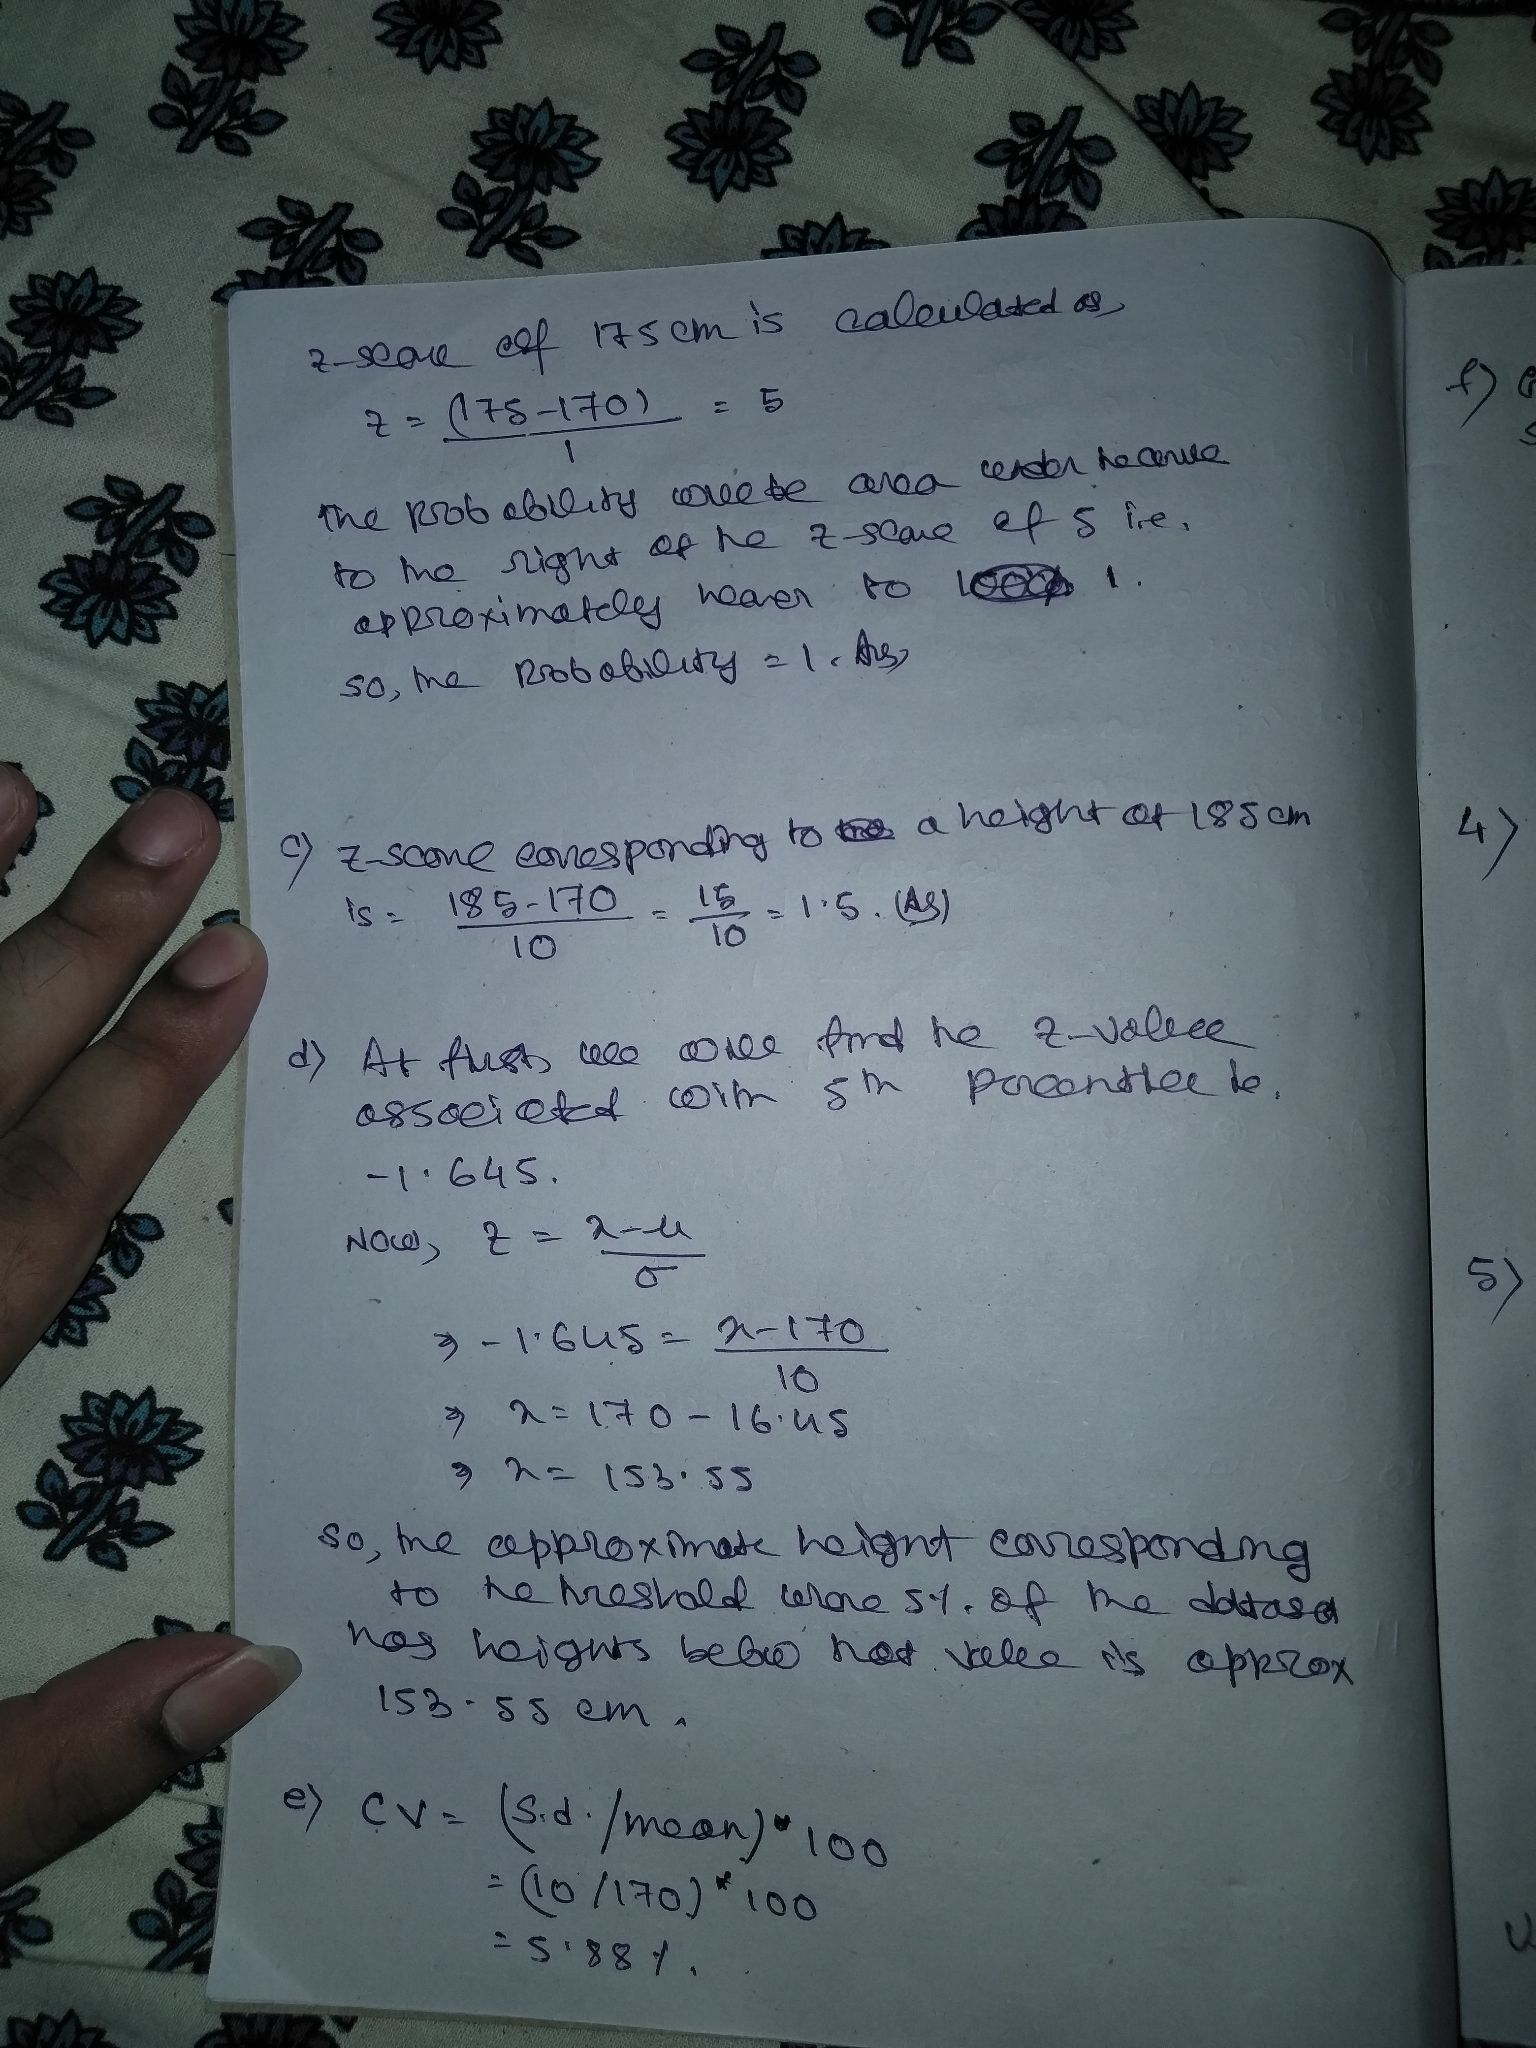 z-score of 175 cm is calculated as,
z = (175-170) / 1 = 5
The probability will be area under the curve
to the right of the z-score of 5 i.e.
approximately nearer to 1.
so, the Probability = 1. Ans,
c) z-score corresponding to a height of 185 cm
is = 185-170 / 10 = 15 / 10 = 1.5. (As)
d) At first, we will find the z-value
associated with 5th percentile ie.
-1.645.
Now, z = x-μ / σ
⇒ -1.645 = x-170 / 10
⇒ x = 170 - 16.45
⇒ x = 153.55
so, the approximate height corresponding
to the threshold where 5% of the dataset
has heights below that value is approx
153.55 cm.
e) CV = (S.d./mean) * 100
= (10/170) * 100
= 5.88%.
f)
4)
5)